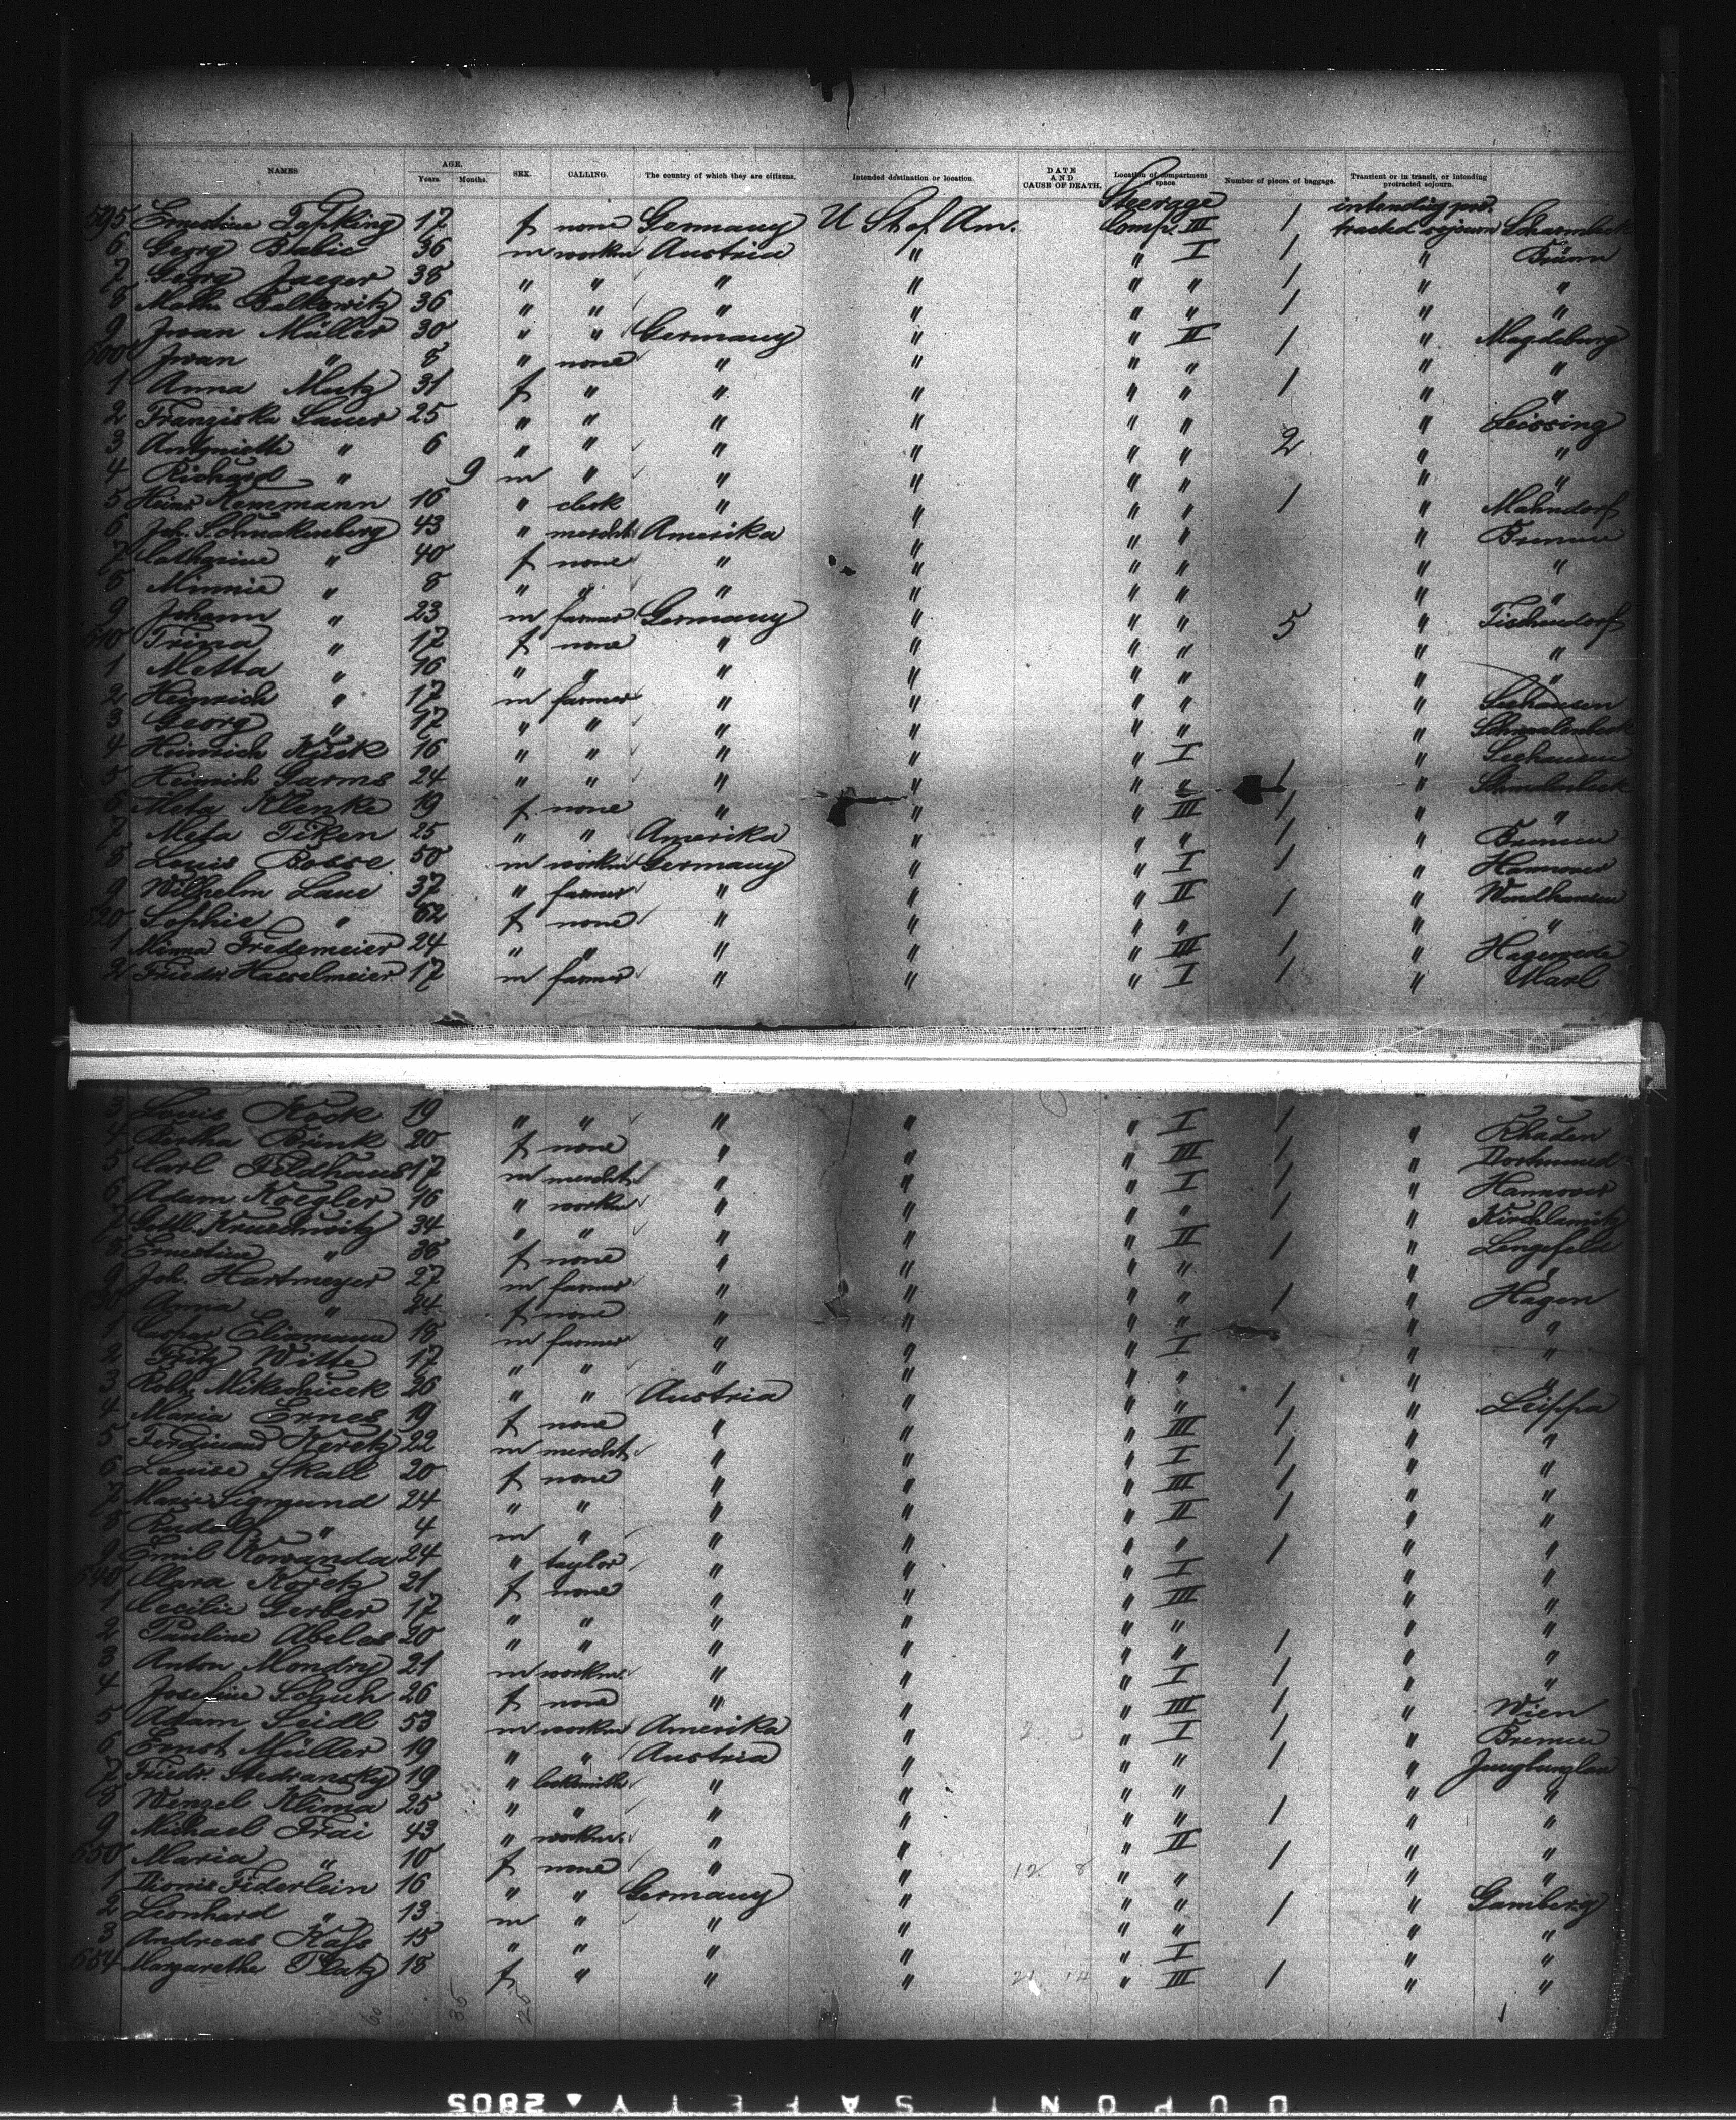 NAMES AGE. Years. Months. SEX. CALLING. The country of which they are citizens. Intended destination or location. DATE AND CAUSE OF DEATH. Location of compartment or space. Number of pieces of baggage. Transient or in transit, or intending protracted sojourn.
Steerage intending pro-
595 Ernestine Tapking 17 f none Germany U St of Am. Comp. III 1 tracted sojourn Scharmbeck
6 Georg Babic 36 m workm Austria " " I 1 " Brünn
7 Georg Jaeger 38 " " " " " " 1 " "
8 Math. 36 " " " " " " 1 " "
9 Iwan Müller 30 " " Germany " " II 1 " Magdeburg
600 Iwan " 8 " none " " " " " "
1 Anna Mutz 31 f " " " " " 1 " "
2 Franziska Lauer 25 " " " " " " " Leissing
3 Antoniette " 6 " " " " " " 2 " "
4 Richard " 9 m " " " " " " "
5 Heinr. Kemmann 16 " clerk " " " " 1 " Mahndorf
6 Joh. Schnakenberg 43 " mercht Amerika " " " " Bremen
7 Catharine " 40 f none " " " " " "
8 Minnie " 8 " " " " " " " "
9 Johann " 23 m farmer Germany " " " 5 " Tischendorf
610 Trina " 17 f none " " " " " "
1 Metta " 16 " " " " " " " "
2 Heinrich " 17 m farmer " " " " " Seehausen
3 Georg " 17 " " " " " " " Schmalenbeck
4 Heinrich Kück 16 " " " " " I " Seehausen
5 Heinrich Garms 24 " " " " " " 1 " Schmalenbeck
6 Meta Klenke 19 f none " " " III 1 " "
7 Meta Tiken 25 " " Amerika " " " 1 " Bremen
8 Louis Bosse 50 m workm Germany " " I 1 " Hannover
9 Wilhelm Laue 37 " farmer " " " II 1 " Wendhausen
620 Sophie " 62 f none " " " " " "
1 Minna Fredemeier 24 " " " " " III 1 " Hagewede
2 Friedr. Hasselmeier 17 m farmer " " " I 1 " Marl
3 Louis Kock 19 " " " " " I 1 " Rhaden
4 Bertha Brink 20 f none " " " III 1 " Dortmund
5 Carl Feldhaus 17 m mercht " " " I 1 " Hannover
6 Adam Koegler 16 " workm " " " " 1 " Kirchlamitz
7 Gottl. 34 " " " " " II 1 " Lengefeld
8 Ernestine " 38 f none " " " " " "
9 Joh. Hartmeyer 27 m farmer " " " " 1 " Hagen
630 Anna " 24 f none " " " " " "
1 Caspar 18 m farmer " " " I " "
2 Fritz Witte 17 " " " " " " " "
3 Mikschicek 26 " " Austria " " " 1 " Leippa
4 Maria Ernes 19 f none " " " III 1 " "
5 Ferdinand Keretz 22 m mercht " " " I 1 " "
6 Louise Skall 20 f none " " " III 1 " "
7 Marie Sigmund 24 " " " " " II 1 " "
8 Rudolf " 4 m " " " " " " "
9 Emil Kowanda 24 " taylor " " " I 1 " "
640 Clara Koretz 21 f none " " " III " "
1 Cecilie Gerber 17 " " " " " " " "
2 Pauline Abeles 20 " " " " " " 1 " "
3 Anton Mondry 21 m workm. " " " I 1 " "
4 Josefine Schuh 26 f none " " " III 1 " Wien
5 Adam Seidl 53 m workm Amerika " " I 1 " Bremen
6 Ernst Müller 19 " " Austria " " " 1 " Jungbunzlau
7 Friedr. Stedransky 19 " locksmith " " " " " "
8 Wenzel Klima 25 " " " " " " 1 " "
9 Michael Frai 43 " workm. " " " II " "
650 Maria " 10 f none " " " " 1 " "
1 Dionis Fiderlein 16 " " Germany " " " " Gamberg
2 Leonhard " 13 m " " " " " 1 " "
3 Andreas Kass 15 " " " " " I " "
654 Margarethe Platz 18 f " " " " III 1 " "
DUPONT SAFETY ▲ 2805